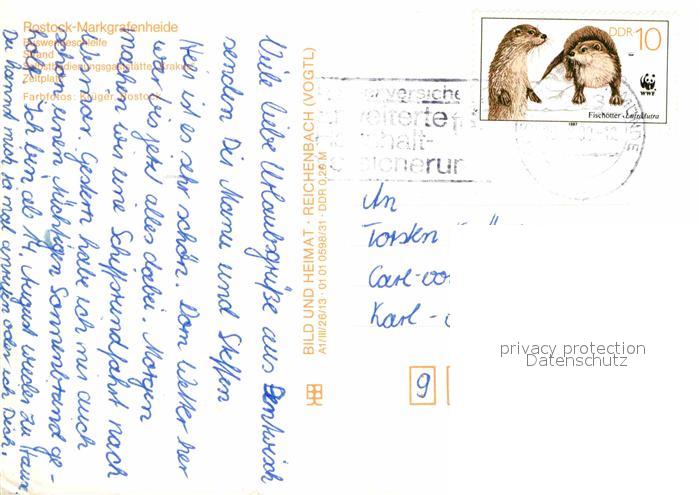 Rostock-Markgrafenheide
Buswendeschleife
Strand
Selbstbedienungsgaststätte "Kraken"
Zeltplatz
Farbfotos: Krüger, Rostock
Viele liebe Urlaubsgrüße aus
senden Dir Manu und Steffen
Hier ist es sehr schön. Vom Wetter her
war bis jetzt alles dabei. Morgen
machen wir eine Schiffsrundfahrt nach
Gestern habe ich mir auch
schon einen mächtigen Sonnenbrand ge-
holt. Ich bin ab 14. August wieder zu Hause
Du kannst mich ja mal anrufen oder ich Dich.
BILD UND HEIMAT · REICHENBACH (VOGTL)
A1/III/26/13 · 01 01 0598/31 · DDR 0,20 M
DDR 10
WWF
Fischotter · Lutra lutra
1987
versiche
erweiterte
haushalt-
sicherun
An
Torsten
Carl-vo
Karl-
9
privacy protection
Datenschutz